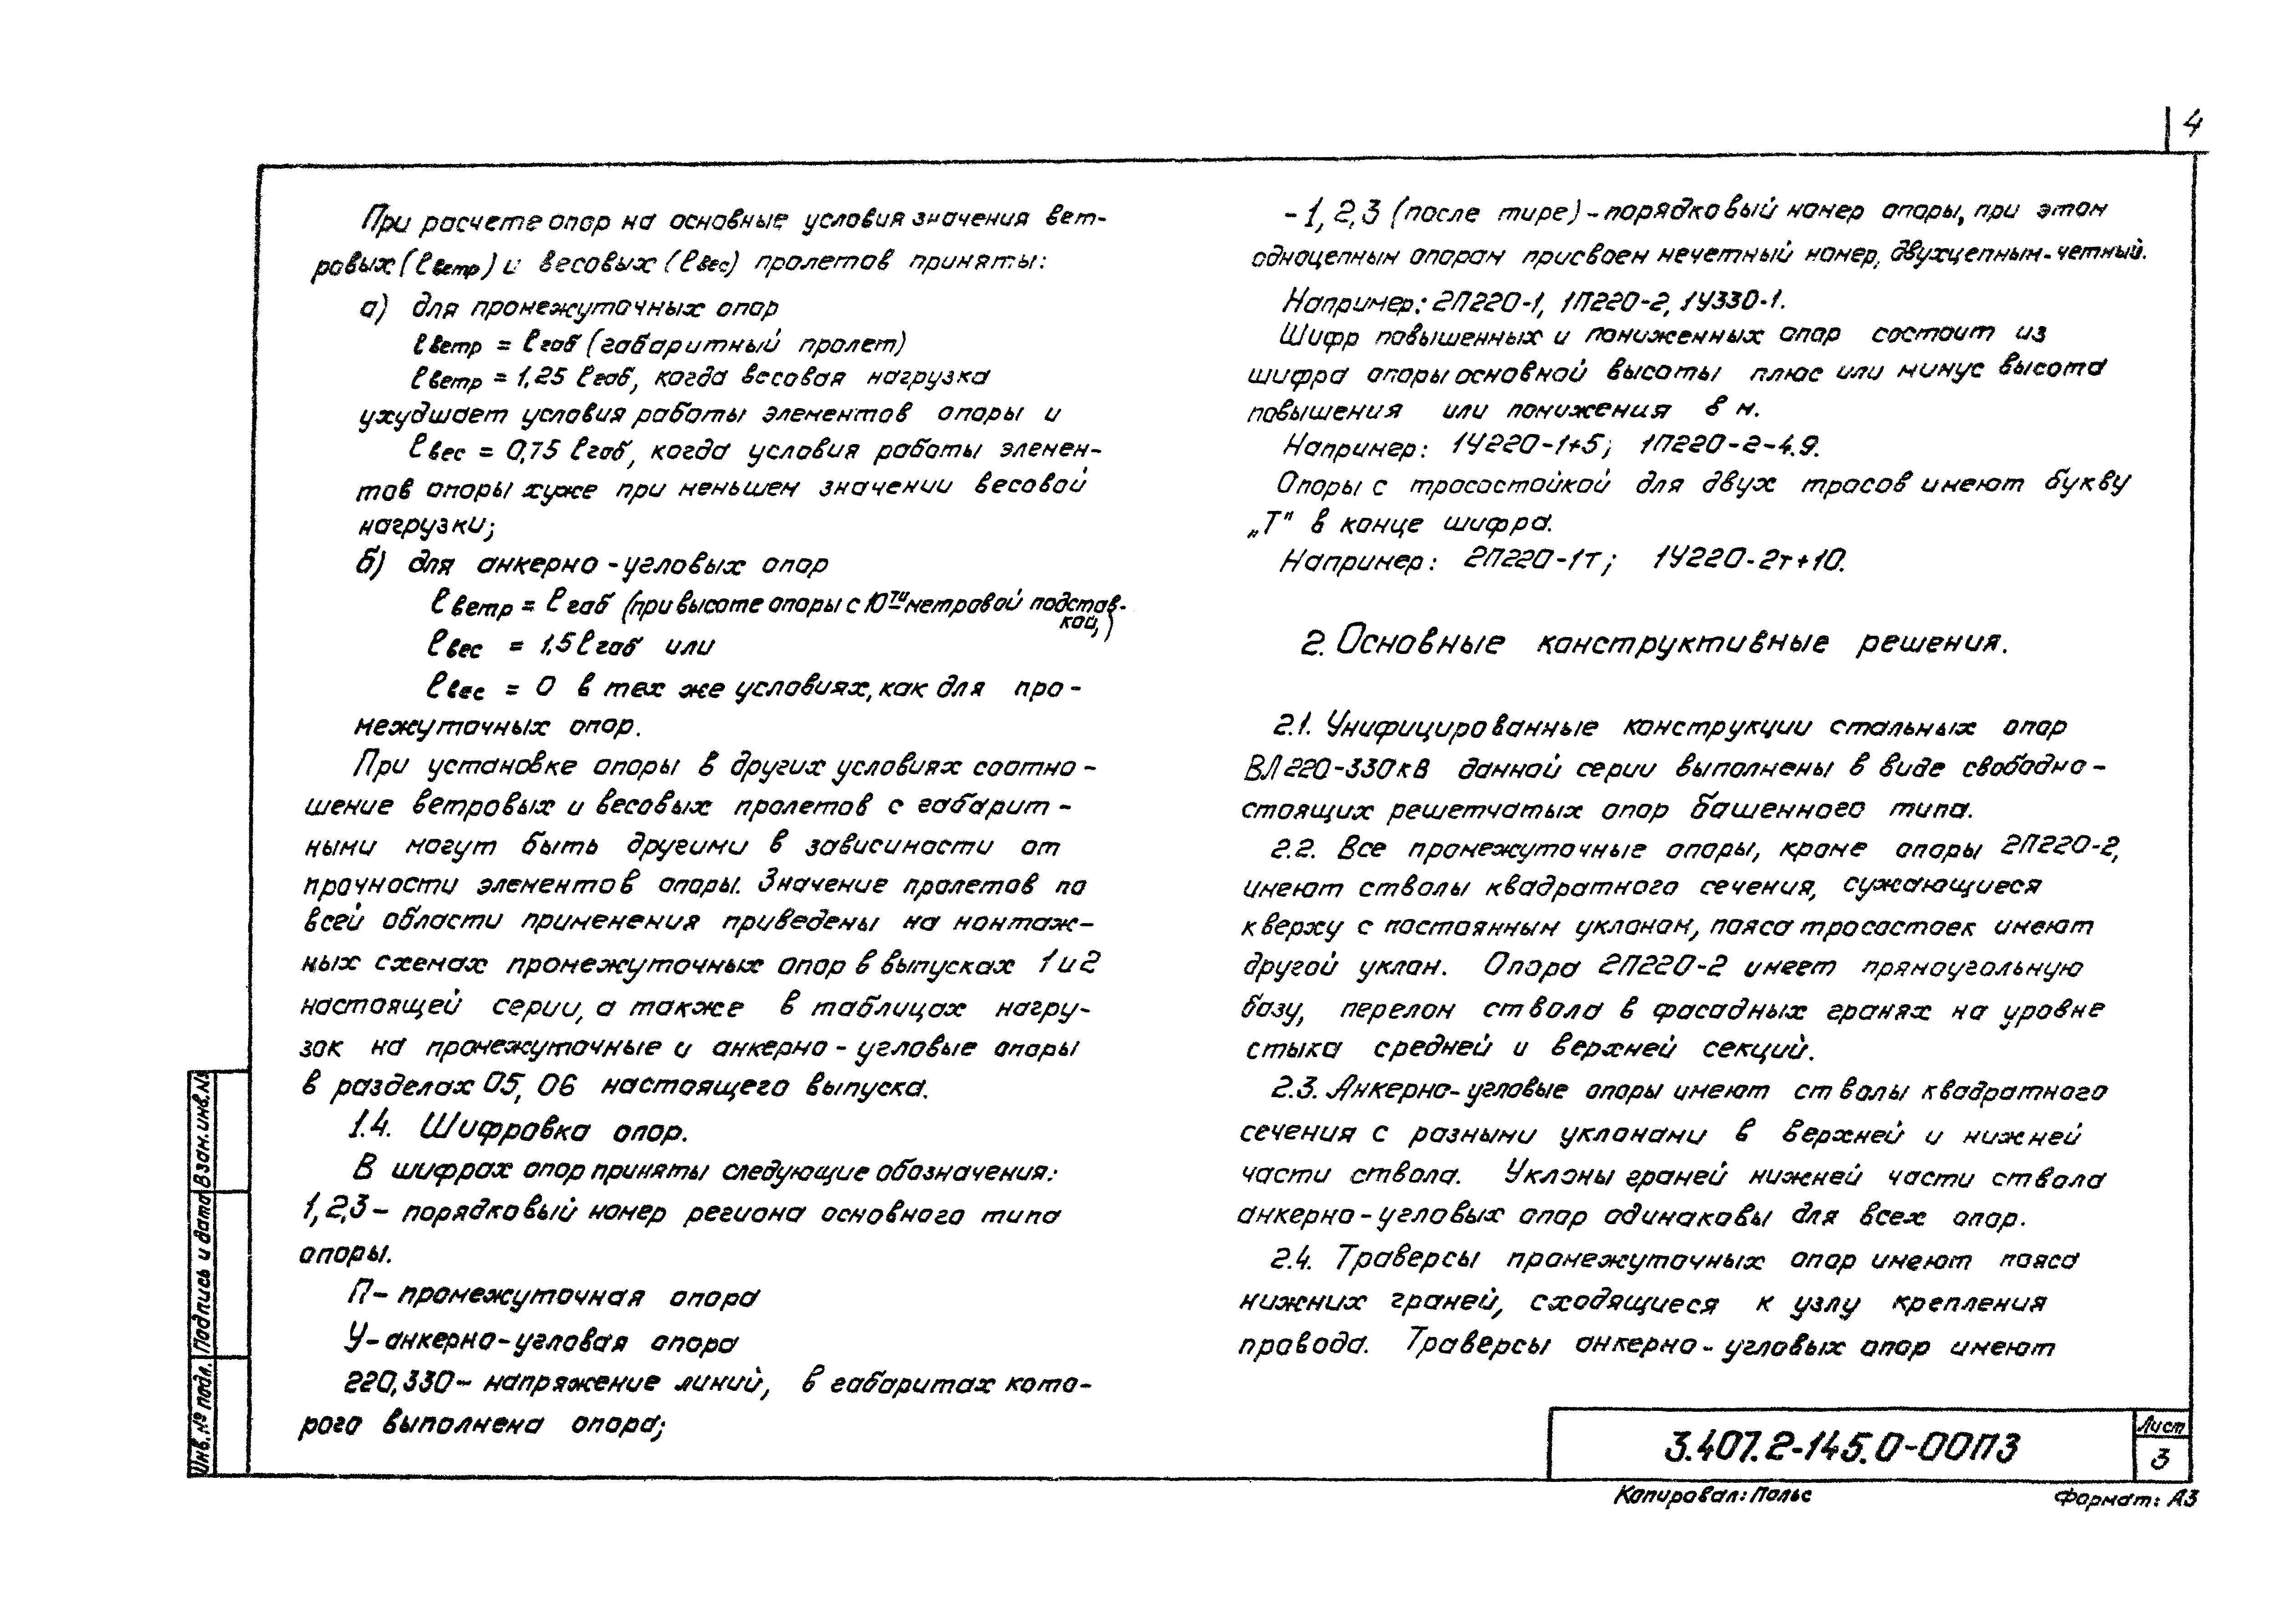 4
При расчете опор на основные условия значения вет-
ровых (ℓветр) и весовых (ℓвес) пролетов приняты:
а) для промежуточных опор
ℓветр = ℓгаб (габаритный пролет)
ℓветр = 1,25 ℓгаб, когда весовая нагрузка
ухудшает условия работы элементов опоры и
ℓвес = 0,75 ℓгаб, когда условия работы элемен-
тов опоры хуже при меньшем значении весовой
нагрузки;
б) для анкерно-угловых опор
ℓветр = ℓгаб (при высоте опоры с 10ти метровой подстав-
кой,)
ℓвес = 1,5 ℓгаб или
ℓвес = 0 в тех же условиях, как для про-
межуточных опор.
При установке опоры в других условиях соотно-
шение ветровых и весовых пролетов с габарит-
ными могут быть другими в зависимости от
прочности элементов опоры. Значение пролетов по
всей области применения приведены на монтаж-
ных схемах промежуточных опор в выпусках 1 и 2
настоящей серии, а также в таблицах нагру-
зок на промежуточные и анкерно-угловые опоры
в разделах 05, 06 настоящего выпуска.
1.4. Шифровка опор.
В шифрах опор приняты следующие обозначения:
1,2,3 - порядковый номер региона основного типа
опоры.
П - промежуточная опора
У - анкерно-угловая опора
220, 330 - напряжение линий, в габаритах кото-
рого выполнена опора;
- 1, 2, 3 (после тире) - порядковый номер опоры, при этом
одноцепным опорам присвоен нечетный номер, двухцепным - четный.
Например: 2П220-1, 1П220-2, 1У330-1.
Шифр повышенных и пониженных опор состоит из
шифра опоры основной высоты плюс или минус высота
повышения или понижения в м.
Например: 1У220-1+5; 1П220-2-4.9.
Опоры с тросостойкой для двух тросов имеют букву
„Т" в конце шифра.
Например: 2П220-1т; 1У220-2т+10.
2. Основные конструктивные решения.
2.1. Унифицированные конструкции стальных опор
ВЛ 220-330 кВ данной серии выполнены в виде свободно-
стоящих решетчатых опор башенного типа.
2.2. Все промежуточные опоры, кроме опоры 2П220-2,
имеют стволы квадратного сечения, сужающиеся
кверху с постоянным уклоном, пояса тросостоек имеют
другой уклон. Опора 2П220-2 имеет прямоугольную
базу, перелом ствола в фасадных гранях на уровне
стыка средней и верхней секций.
2.3. Анкерно-угловые опоры имеют стволы квадратного
сечения с разными уклонами в верхней и нижней
части ствола. Уклоны граней нижней части ствола
анкерно-угловых опор одинаковы для всех опор.
2.4. Траверсы промежуточных опор имеют пояса
нижних граней, сходящиеся к узлу крепления
провода. Траверсы анкерно-угловых опор имеют
Взам. инв. №
Подпись и дата
Инв. № подл.
3.407.2-145.0-00ПЗ
Лист
3
Копировал: Польс
Формат: А3